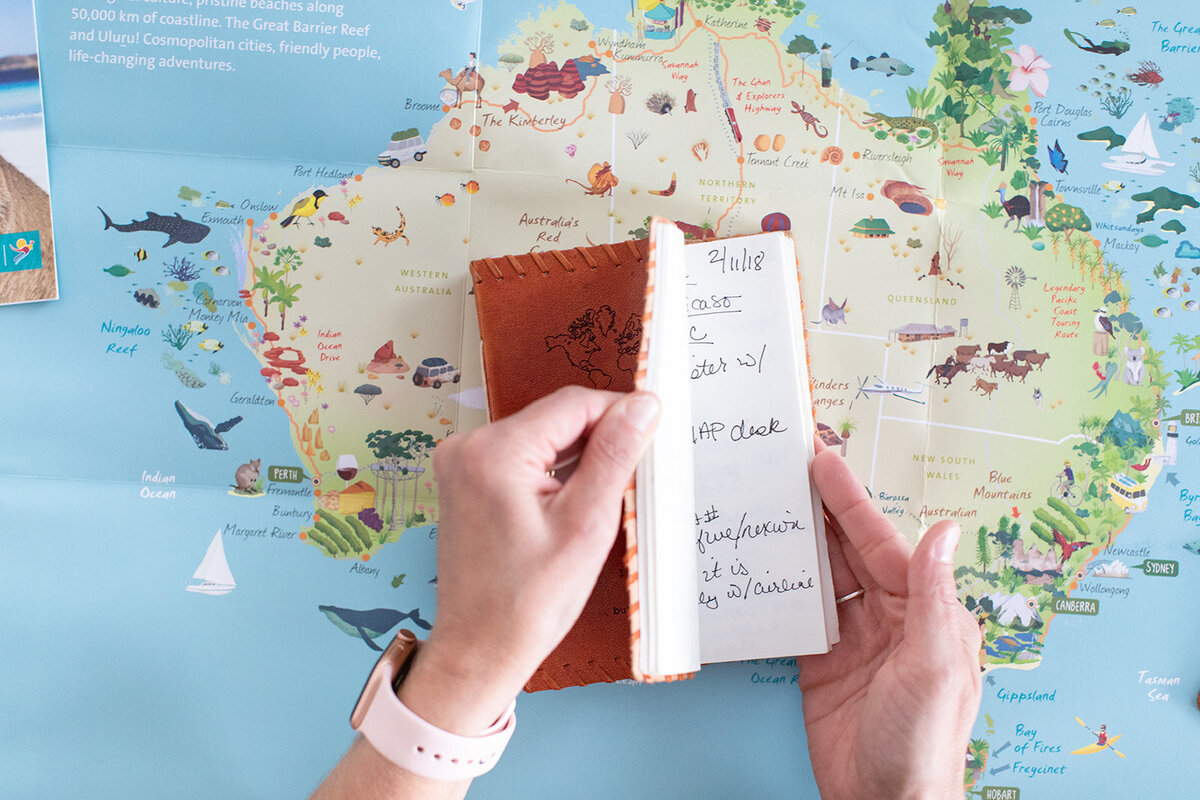 culture, pristine beaches along
50,000 km of coastline. The Great Barrier Reef
and Uluru! Cosmopolitan cities, friendly people,
life-changing adventures.
Katherine
The Great
Barrier
Wyndham
Kununurra
Savannah
Way
Broome
The Kimberley
The Ghan
& Explorers
Highway
Port Douglas
Cairns
Tennant Creek
Riversleigh
Savannah
Way
Port Hedland
Mt Isa
Townsville
NORTHERN
TERRITORY
Onslow
Exmouth
Australia's
Red
Whitsundays
Mackay
WESTERN
AUSTRALIA
QUEENSLAND
Legendary
Pacific
Coast
Touring
Route
Carnarvon
Monkey Mia
Ningaloo
Reef
Indian
Ocean
Drive
2/11/18
caso
C
ster w/
AP desk
##
it is
w/airline
Flinders
Ranges
Geraldton
NEW SOUTH
WALES
Indian
Ocean
PERTH
Fremantle
Bunbury
Margaret River
Albany
Blue
Mountains
Barossa
Valley
Australian
Newcastle
SYDNEY
Wollongong
CANBERRA
Tasman
Sea
The Great
Ocean R
Gippsland
Bay
of Fires
Freycinet
HOBART